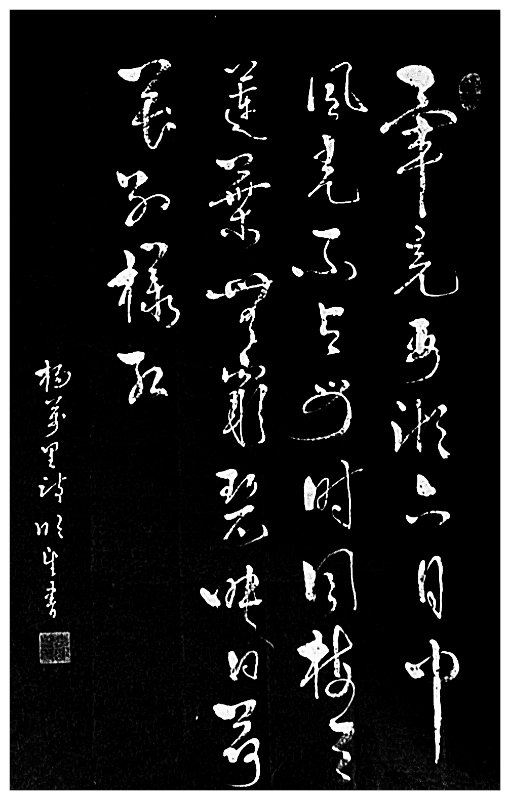 畢竟西湖六月中
風光不与四时同接天
蓮葉無窮碧映日荷
花別樣紅
楊萬里詩 書